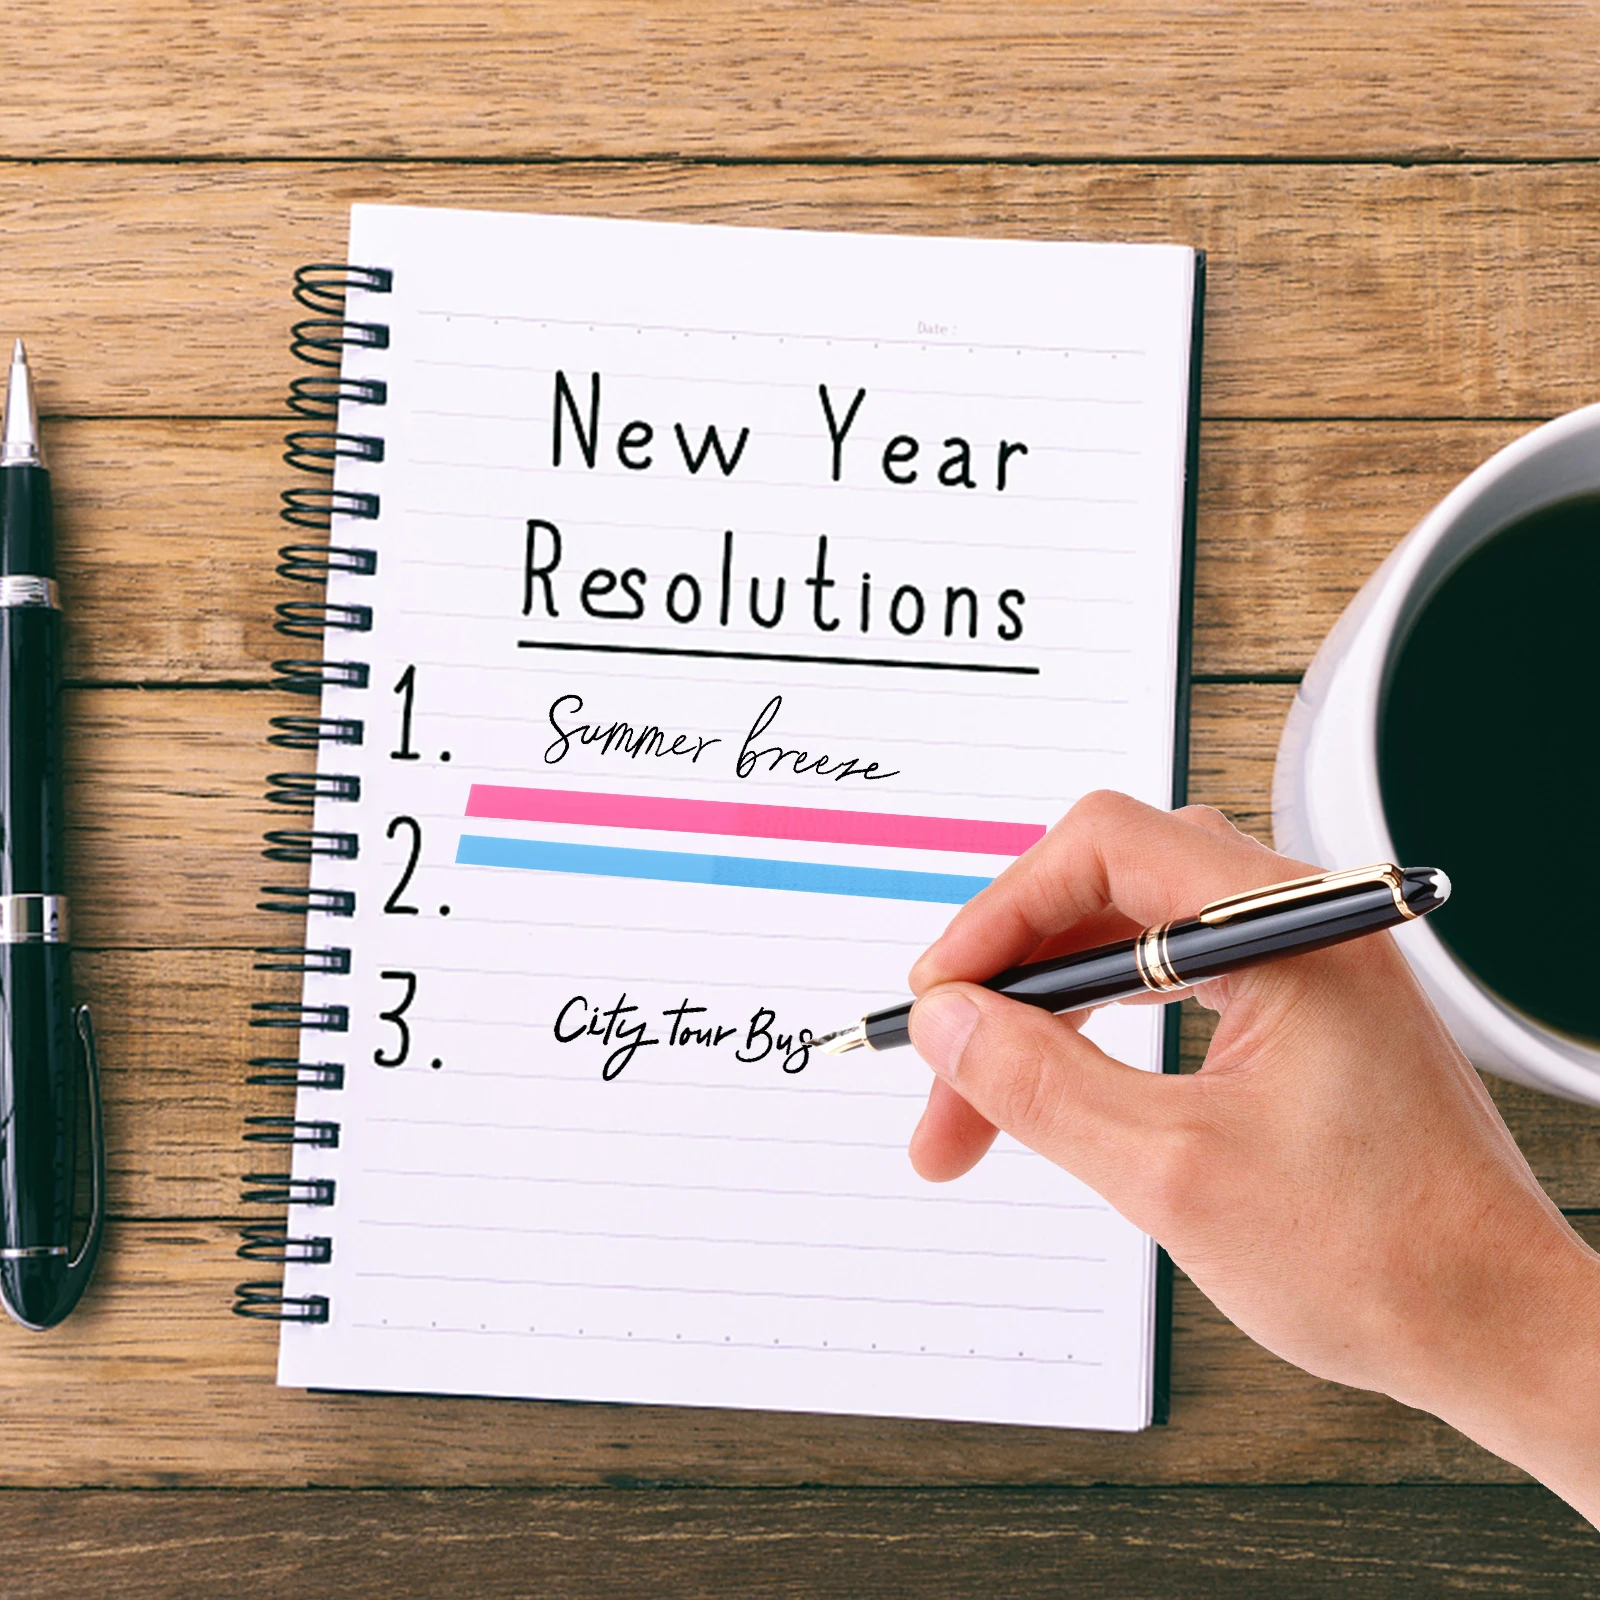 Date:
New Year
Resolutions
1. Summer breeze
2.
3. City tour Bus